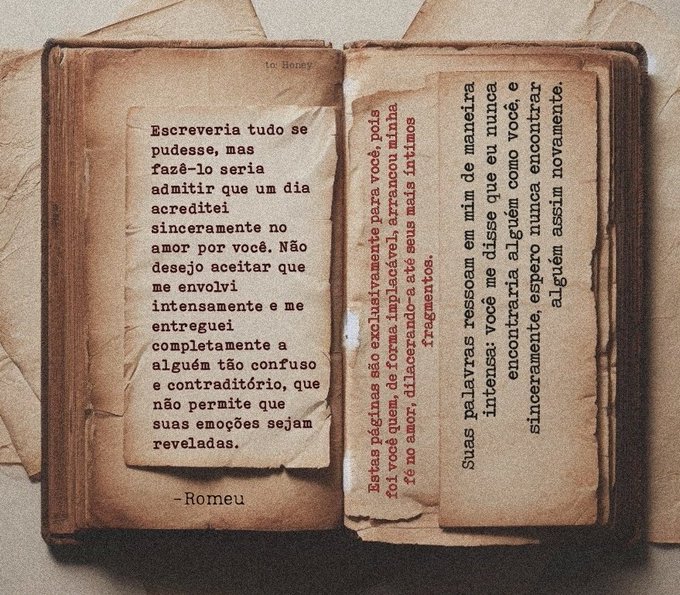 to: Honey
Escreveria tudo se
pudesse, mas
fazê-lo seria
admitir que um dia
acreditei
sinceramente no
amor por você. Não
desejo aceitar que
me envolvi
intensamente e me
entreguei
completamente a
alguém tão confuso
e contraditório, que
não permite que
suas emoções sejam
reveladas.
-Romeu
Estas páginas são exclusivamente para você, pois
foi você quem, de forma implacável, arrancou minha
fé no amor, dilacerando-a até seus mais íntimos
fragmentos.
Suas palavras ressoam em mim de maneira
intensa: você me disse que eu nunca
encontraria alguém como você, e
sinceramente, espero nunca encontrar
alguém assim novamente.